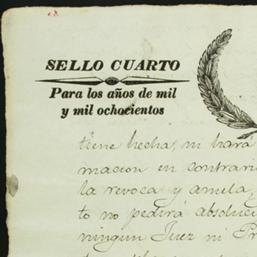 SELLO CUARTO
Para los años de mil
y mil ochocientos
tiene hecha, ni hara
macion en contrari
la revoca y anula,
to no pedirá absoluci
ningun Juez ni Pr